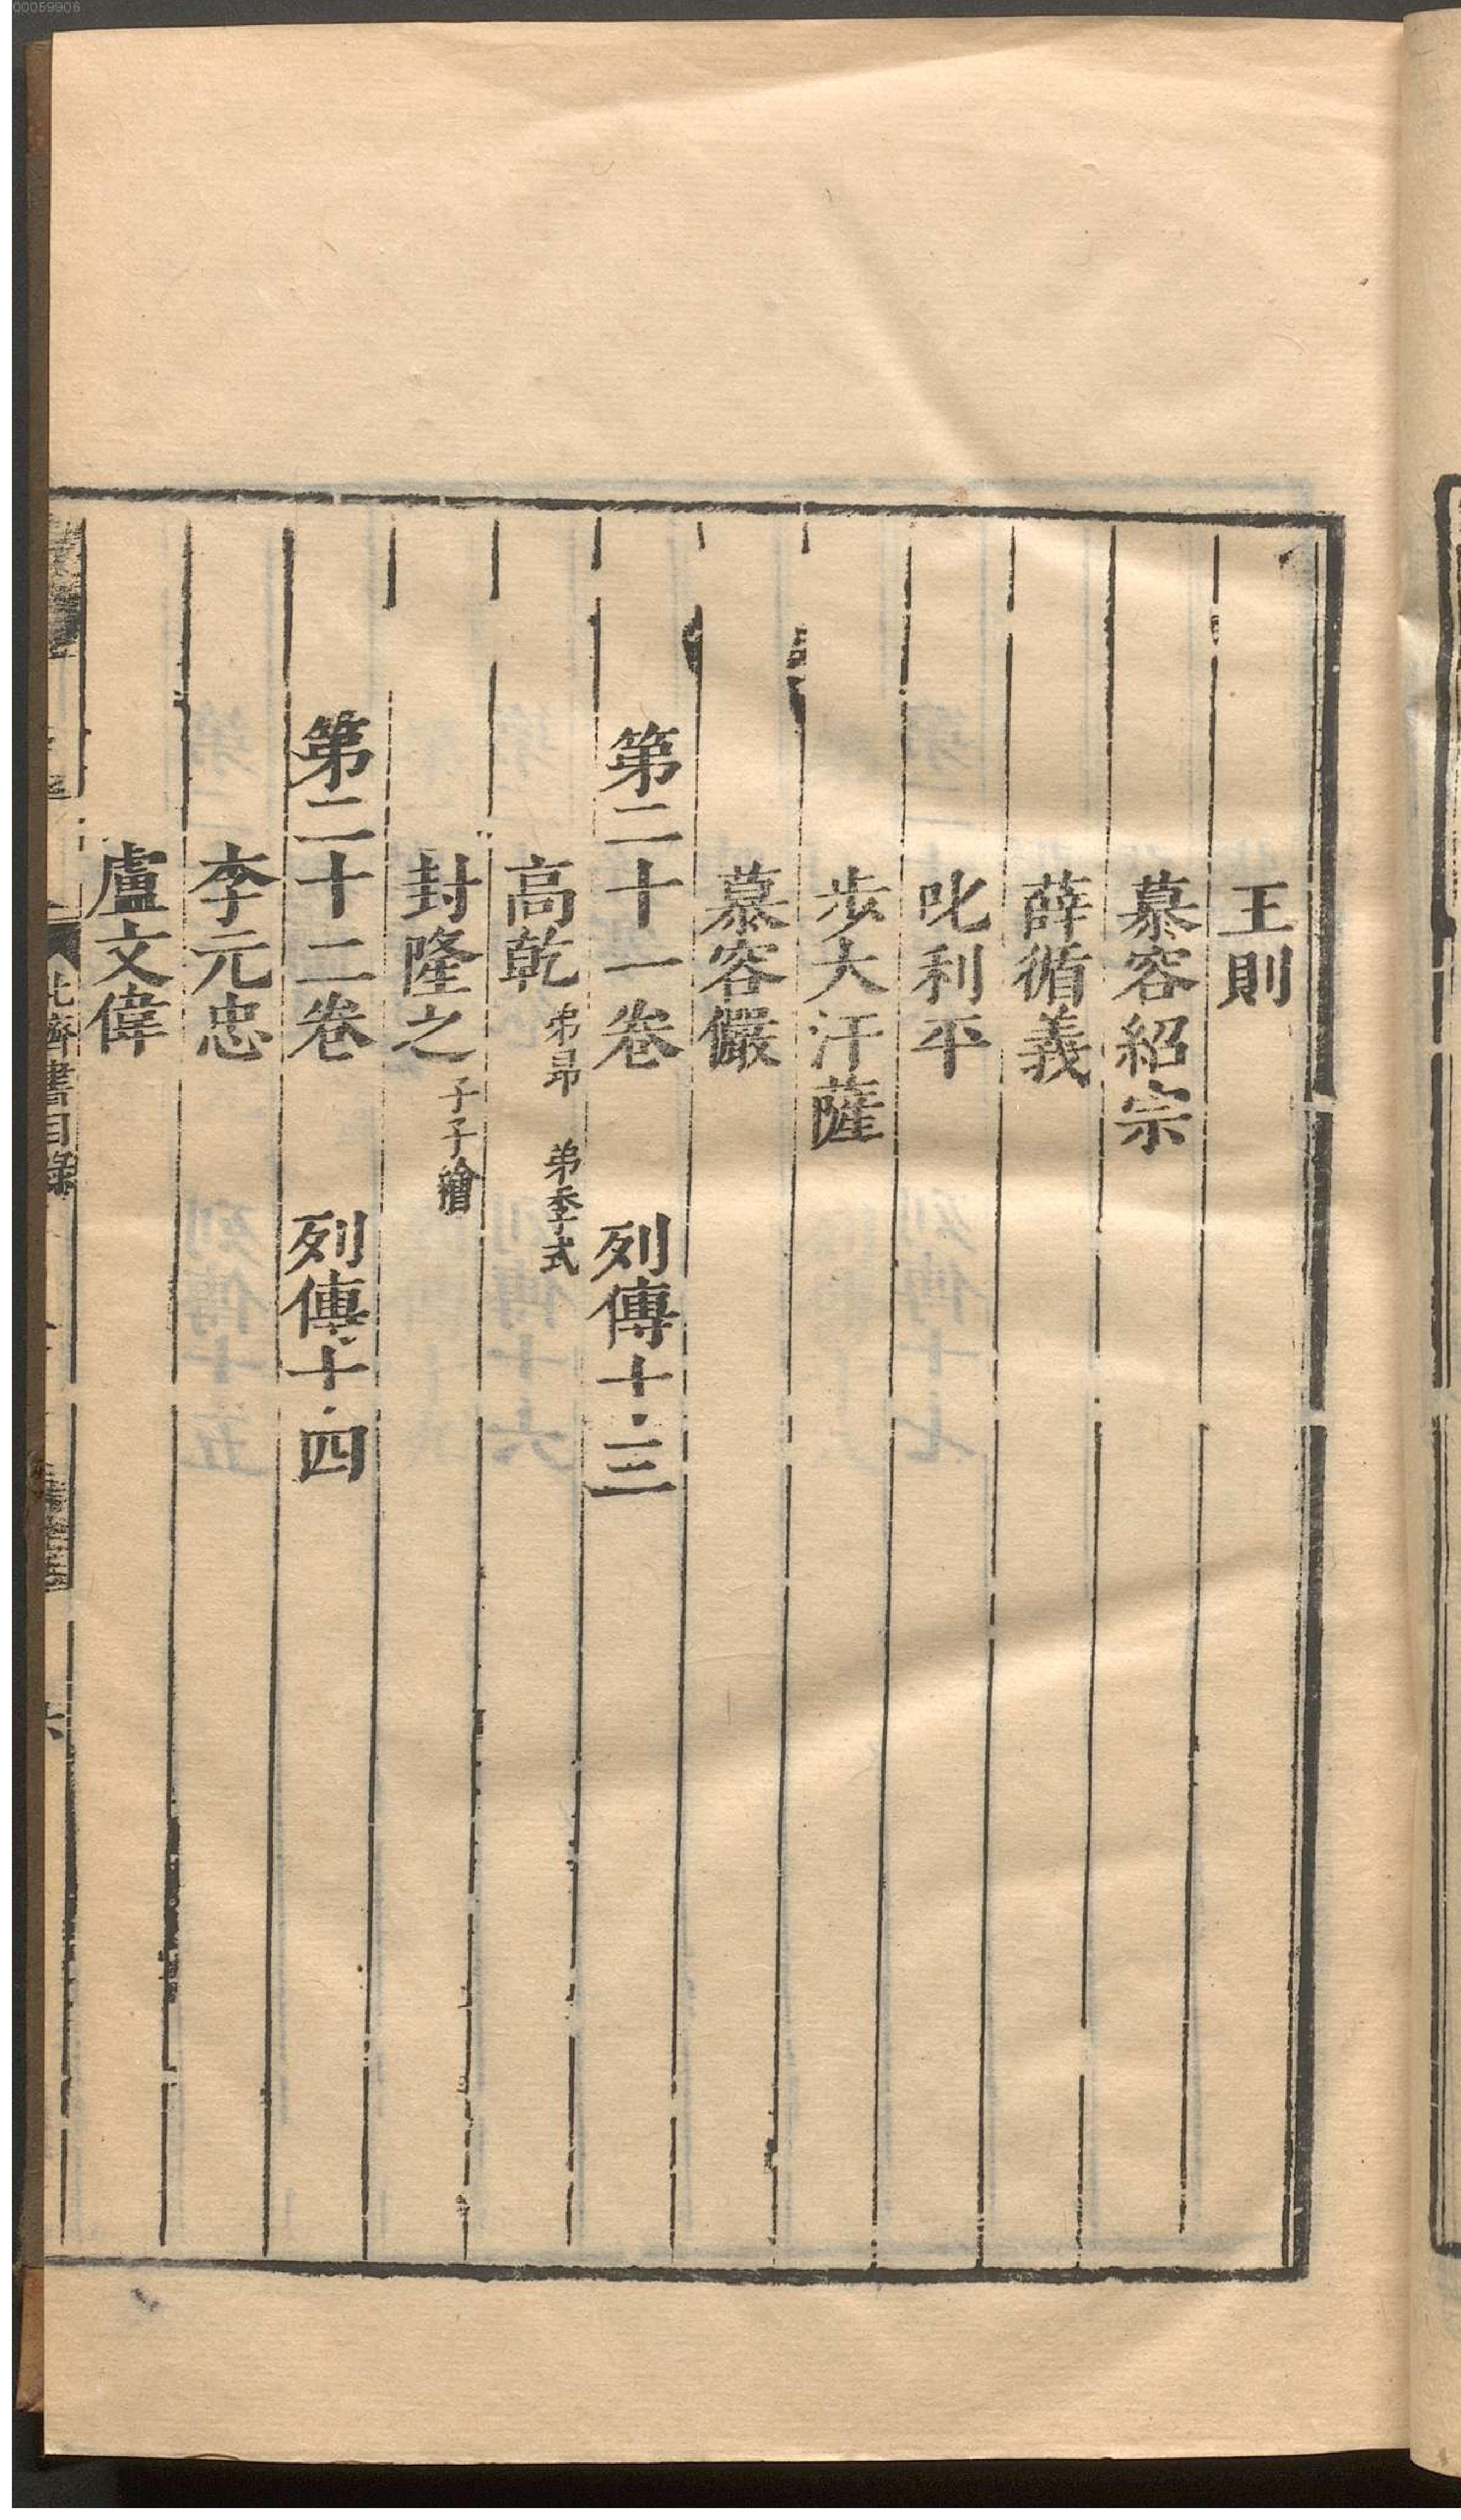 00059906
王則
慕容紹宗
薛循義
叱利平
步大汗薩
慕容儼
第二十一卷 列傳十三
高乾 弟昻 弟季式
封隆之 子子繪
第二十二卷 列傳十四
李元忠
盧文偉
北齊書目錄
六